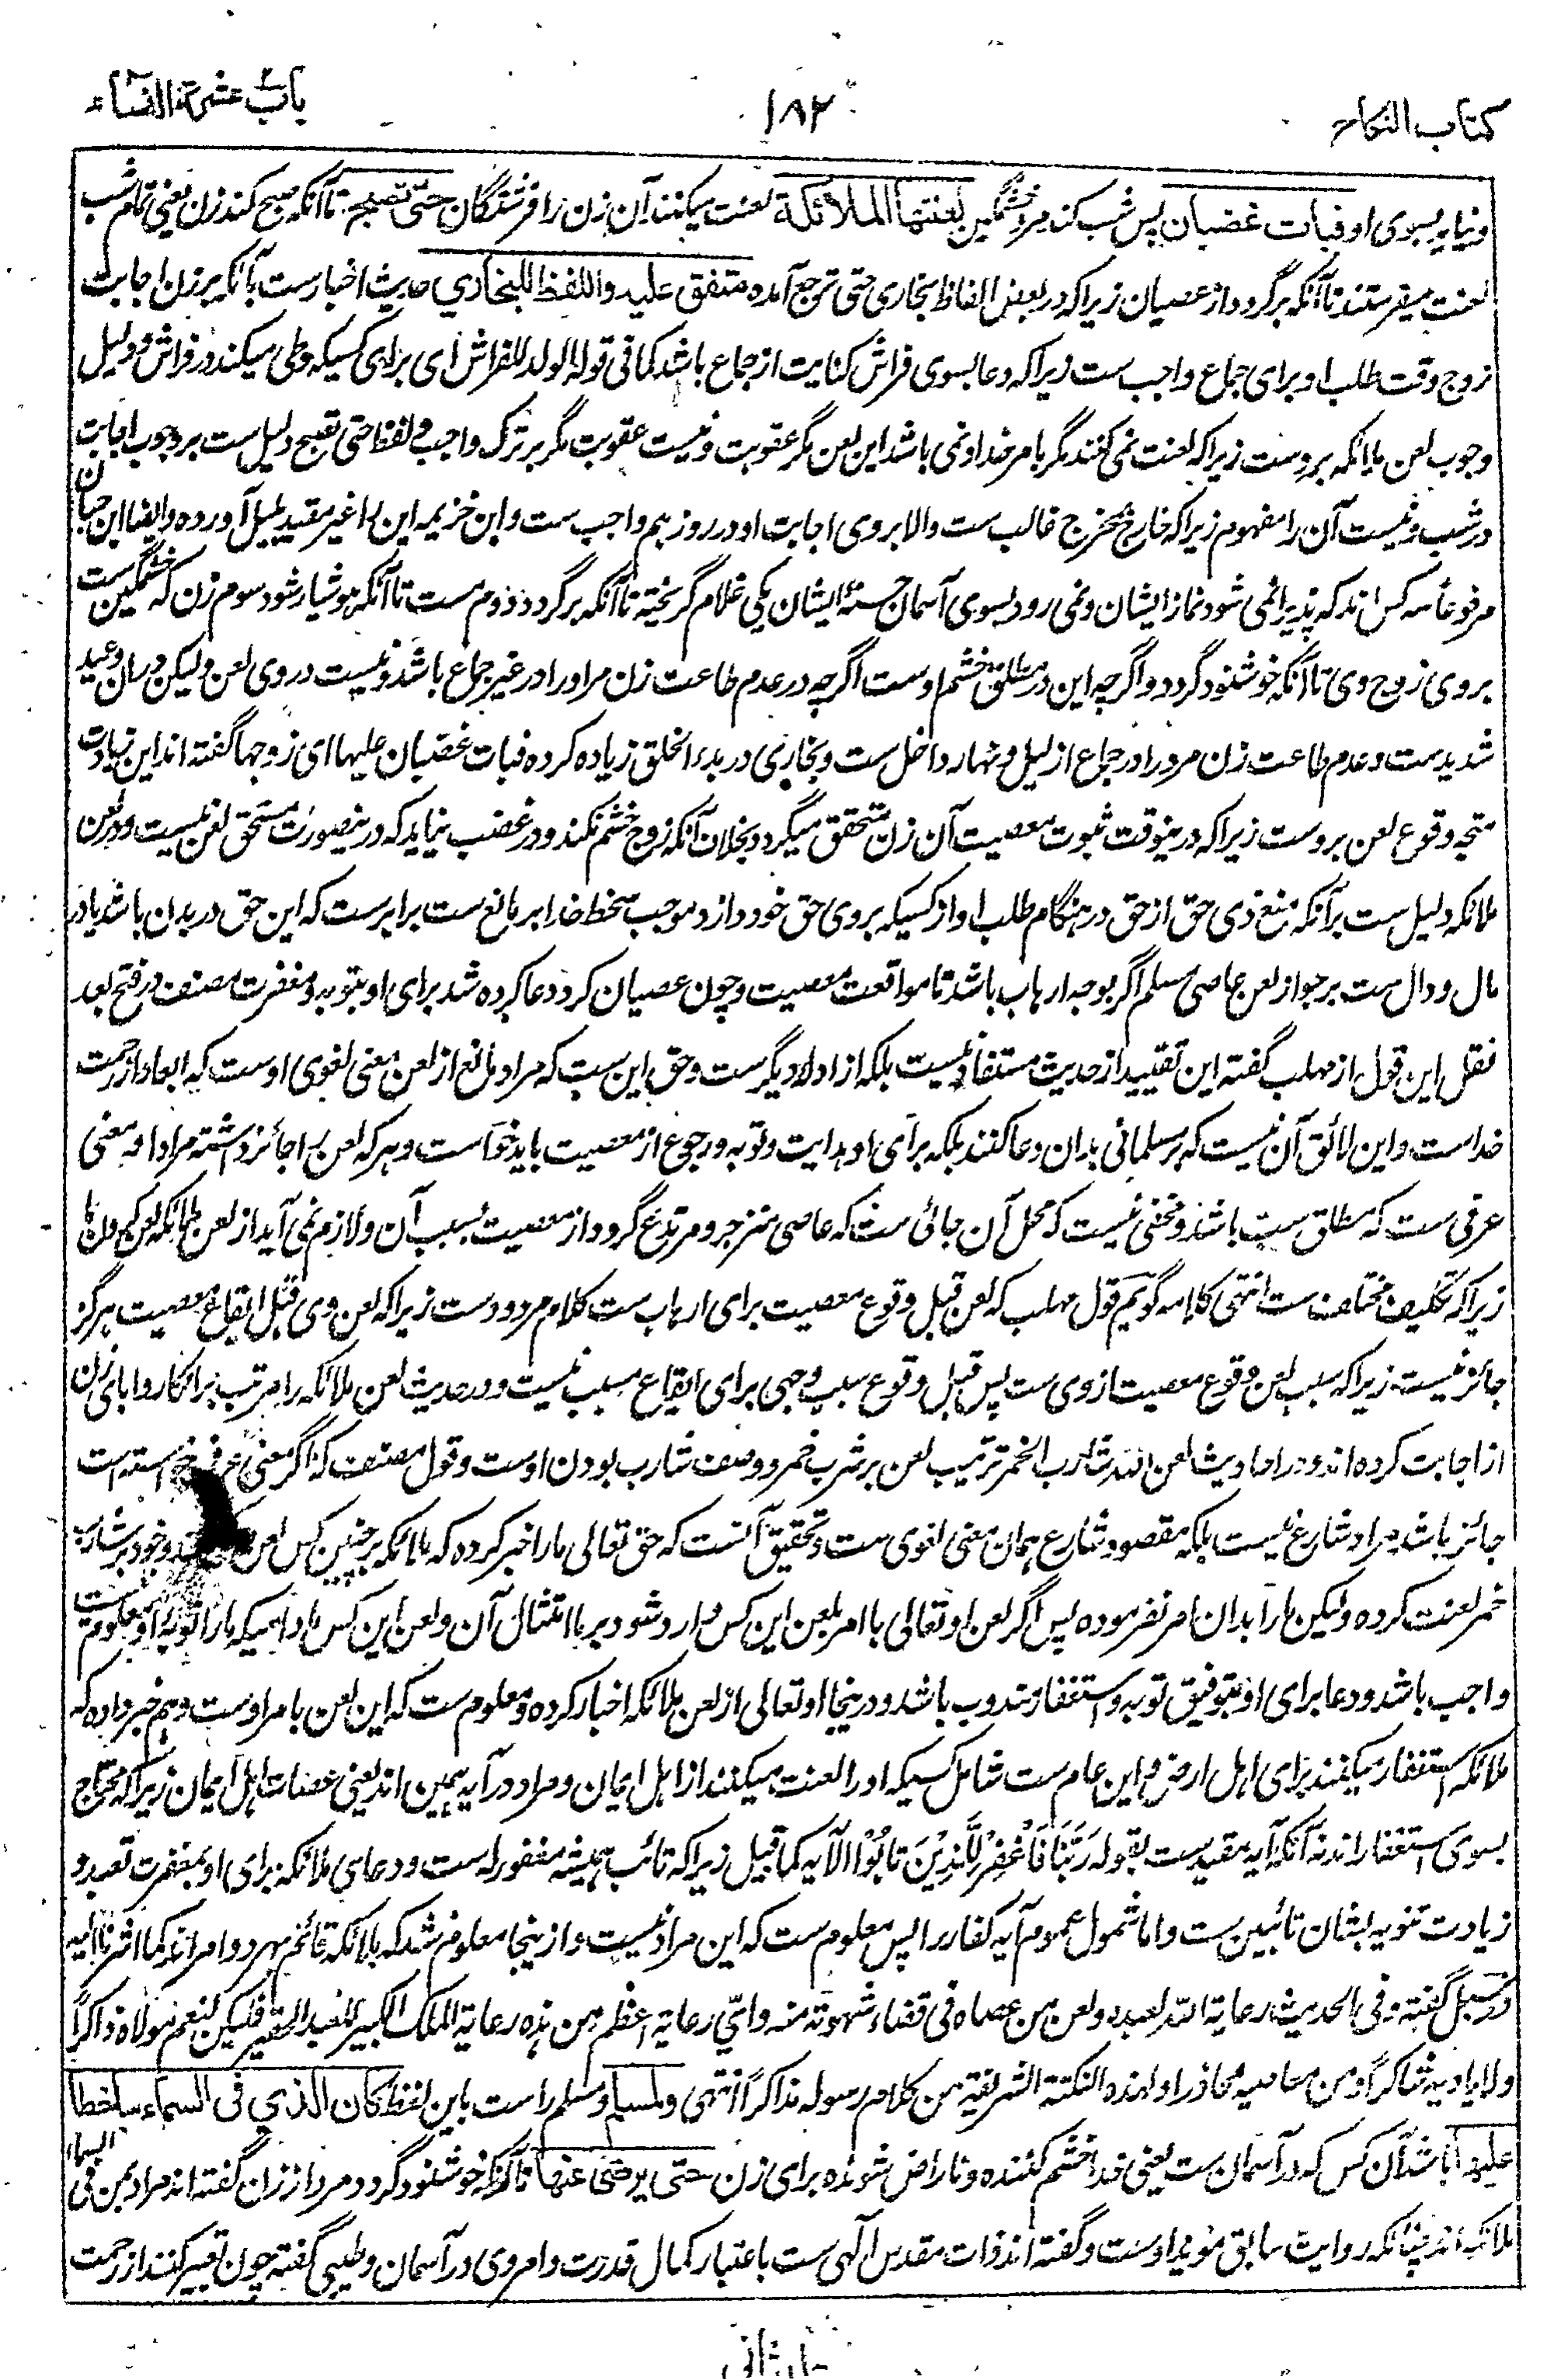 کتاب النکاح
۱۸۲
باب عشرة النساء
ونیاید بسوی او فبات غضبان پس شب کند مرد خشمگین لعنتها الملائکة لعنت میکنند آن زن را فرشتگان حتی تصبح تا آنکه صبح کند زن یعنی تمام شب
لعنت میفرستند تا آنکه برگردد از عصیان زیراکه در بعض الفاظ بخاری حتی ترجع آمده متفق علیه واللفظ للبخاري حدیث اخبارست بآنکه بر زن اجابت
زوج وقت طلب او برای جماع واجب ست زیراکه دعا بسوی فراش کنایت از جماع باشد کما فی قوله الولد للفراش ای برای کسیکه وطی میکند در فراش و دلیل
وجوب لعن ملائکه بروست زیراکه لعنت نمی کنند مگر بامر خدا و نمی باشد این لعن مگر عقوبت ونیست عقوبت مگر بر ترک واجب و لفظ حتی تصبح دلیل ست بر وجوب اجابت
در شب ونیست آن را مفهوم زیراکه خارج مخرج غالب ست والا بروی اجابت او در روز هم واجب ست وابن خزیمه این را غیر مقید بلیل آورده وایضا ابن حبان
مرفوعا سه کس اند که پذیرا نمی شود نماز ایشان ونمی رود بسوی آسمان حسنهٔ ایشان یکی غلام گریخته تا آنکه برگردد دوم مست تا آنکه هوشیار شود سوم زن که خشمگین ست
بروی زوج وی تا آنکه خوشنود گردد و اگرچه این در مطلق خشم اوست اگرچه در عدم طاعت زن مر او را در غیر جماع باشد ونیست در وی لعن ولیکن دران وعید
شدیدست وعدم طاعت زن مرد را در جماع از لیل ونهار داخل ست وبخاری در بدء الخلق زیاده کرده فبات غضبان علیها ای زوجها گفته اند این زیادت
متجه وقوع لعن بروست زیراکه درینوقت ثبوت معصیت آن زن متحقق میگردد بخلاف آنکه زوج خشم نکند و در غضب نیاید که درینصورت مستحق لعن نیست ودر لعن
ملائکه دلیل ست برآنکه منع ذی حق از حق در هنگام طلب او از کسیکه بروی حق خود دارد موجب سخط خدا بر مانع ست برابرست که این حق در بدن باشد یا در
مال ودال ست بر جواز لعن عاصی مسلم اگر بوجه ارهاب باشد تا مواقعت معصیت وچون عصیان کرد دعا کرده شد برای او بتوبه ومغفرت مصنف در فتح بعد
نقل این قول از مهلب گفته این تقیید از حدیث مستفاد نیست بلکه از ادله دیگرست وحق این ست که مراد مانع از لعن معنی لغوی اوست که ابعاد از رحمت
خداست واین لائق آن نیست که بر مسلمانی بدان دعا کنند بلکه برای او هدایت وتوبه ورجوع از معصیت باید خواست وهر که لعن را جائز داشته مراد او معنی
عرفی ست که مطلق سب باشد ومخفی نیست که محل آن جائی ست که عاصی منزجر ومرتدع گردد از معصیت بسبب آن ولازم نمی آید از لعن ملائکه لعن کردن ما
زیراکه تکلیف مختلف ست انتهی کلامه گویم قول مهلب که لعن قبل وقوع معصیت برای ارهاب ست کلام مردودست زیراکه لعن وی قبل ایقاع معصیت هرگز
جائز نیست زیراکه سبب لعن وقوع معصیت از وی ست پس قبل وقوع سبب وجهی برای ایقاع مسبب نیست ودر حدیث لعن ملائکه را مرتب بر انکار و ابای زن
از اجابت کرده اند ودر احادیث لعن الله شارب الخمر ترتیب لعن بر شرب خمر و وصف شارب بودن اوست وقول مصنف که اگر معنی عرفی خواسته است
جائز باشد مراد شارع نیست بلکه مقصود شارع همان معنی لغوی ست وتحقیق آنست که حق تعالی ما را خبر کرده که ملائکه بر چنین کس لعن وخود بر شارب
خمر لعنت کرده ولیکن ما را بدان امر نفرموده پس اگر لعن او تعالی با امر بلعن این کس وارد شود بر ما امتثال آن ولعن این کس مادامیکه ما را توبه او معلوم نیست
واجب باشد ودعا برای او بتوفیق توبه واستغفار مندوب باشد ودرینجا او تعالی از لعن ملائکه اخبار کرده ومعلوم ست که این لعن بامر اوست وهم خبر داده که
ملائکه استغفار میکنند برای اهل ارض واین عام ست شامل کسیکه او را لعنت میکنند از اهل ایمان ومراد در آیه همین اند یعنی عصات اهل ایمان زیراکه محتاج
بسوی استغفار اند نه آنکه آیه مقیدست بقوله رَبَّنَا فَاغْفِرْ لِلَّذِیْنَ تَابُوْا الآیه کما قیل زیراکه تائب همیشه مغفور له است ودعای ملائکه برای او بمغفرت تعبد و
زیادت تنویه بشان تائبین ست واما شمول عموم آیه کفار را پس معلوم ست که این مراد نیست وازینجا معلوم شد که ملائکه قائم بهر دو امر اند کما اشرنا الیه
ودر سبل گفته وفی الحدیث رعایة الله لعبده ولعن من عصاه فی قضاء شهوته منه وايّ رعایة اعظم من هذه رعایة الملک الکبیر للعبد الحقیر فلیکن لنعم مولاه ذاکرًا
ولایادیه شاکرًا ومن معاصیه محاذرا ولهذه النکتة الشریفة من کلام رسوله مذاکرًا انتهی ولمسلم ومسلم راست باین لفظ کان الذي فی السماء ساخطا
علیها باشد آن کس که در آسمان ست یعنی خدا خشم کننده وناراض شونده برای زن حتی یرضی عنها تا آنکه خوشنود گردد مرد از زن گفته اند مراد بمن فی السماء
ملائکه اند چنانکه روایت سابق مؤید اوست وگفته اند ذات مقدس الٓهی ست باعتبار کمال قدرت وامر وی در آسمان وطیبی گفته چون تعبیر کنند از رحمت